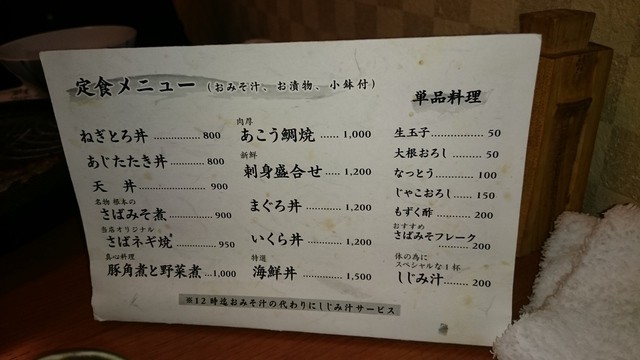 定食メニュー (おみそ汁、お漬物、小鉢付)
ねぎとろ丼 ............... 800
あじたたき丼 ........... 800
天 丼 ..................... 900
名物 根本の
さばみそ煮 ............... 900
当店オリジナル
さばネギ焼 ............... 950
真心料理
豚角煮と野菜煮 ...1,000
肉厚
あこう鯛焼 ....... 1,000
新鮮
刺身盛合せ ..... 1,200
まぐろ丼 ........... 1,200
いくら丼 ........... 1,200
特選
海鮮丼 .............. 1,500
単品料理
生玉子 ................ 50
大根おろし ......... 50
なっとう ............. 100
じゃこおろし ...... 150
もずく酢 ............ 200
おすすめ
さばみそフレーク
......... 200
体の為に
スペシャルな1杯
しじみ汁 ........ 200
※12時迄おみそ汁の代わりにしじみ汁サービス